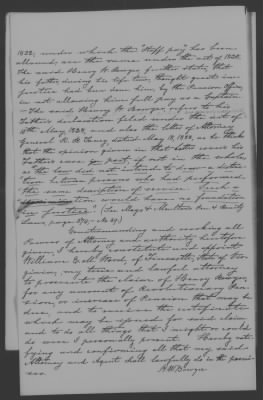 1832, under which the "Staff pay" has been
allowed, are the same under the act of 1828.
The said Henry W. Bowyer further states, that
his father, during his life time, thought great in-
justice had been done him, by the Pension Office,
in not allowing him full pay as Captain
The said Henry W. Bowyer refers to his
Father's declaration filed under the act of
15th May 1828, and also the letter of Attorney
General, R. B. Taney, dated May 18, 1832, as
that the opinion given in that letter covers his
Father's case in part, if not in the whole,
as "the law did not intend to draw a distinc-
tion between persons who had performed
the same description of service. Such a
discrimination would have no foundation
in justice." (See Mayo & Moulton's Pen. & Bounty
Laws, page
Countermanding and revoking all
Powers of Attorney and authority hereto-
given, I hereby constitute and appoint
William E. M. Word, of Fincastle, State of Vir-
ginia, my true and lawful attorney
to prosecute the claim of Henry Bowyer,
for any amount of Revolutionary Pen-
sion, or increase of Pension that may be
due, and to receive the certificate
which may be issued for said claim
and to do all things that I might or could
do were I personally present. Hereby rati-
fying and confirming all that my said
Attorney and Agent shall lawfully do in the premi-
ses.
H. W. Bowyer